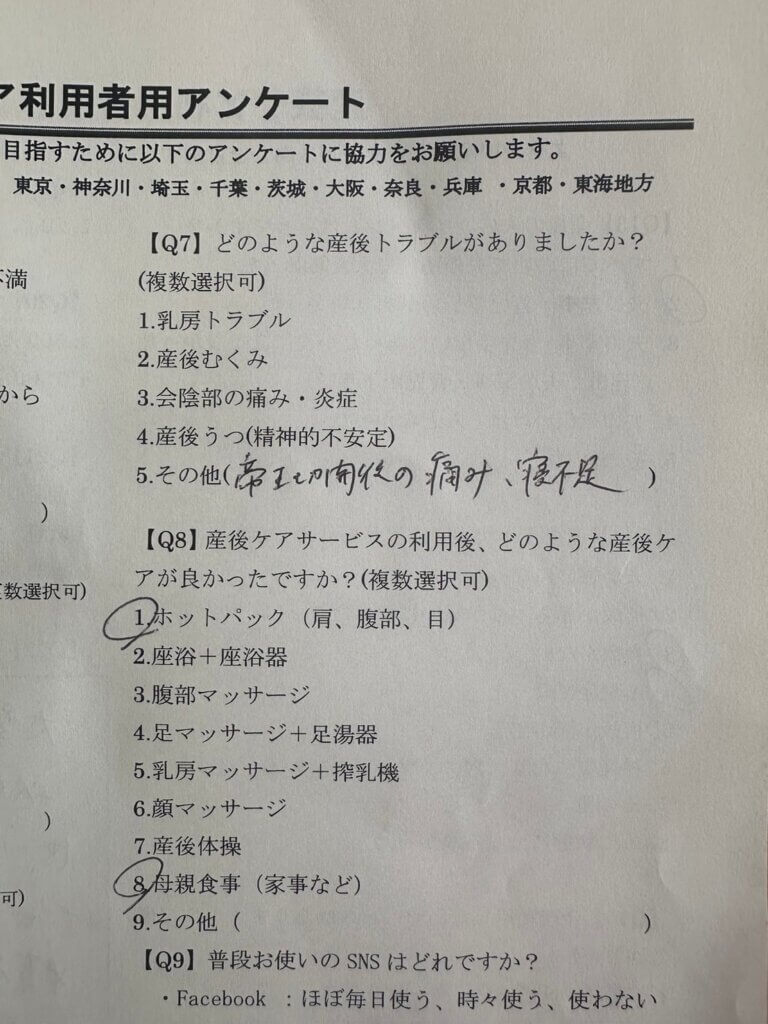 ア利用者用アンケート
目指すために以下のアンケートに協力をお願いします。
東京・神奈川・埼玉・千葉・茨城・大阪・奈良・兵庫 ・京都・東海地方
【Q7】どのような産後トラブルがありましたか？
不満
(複数選択可)
1.乳房トラブル
2.産後むくみ
から
3.会陰部の痛み・炎症
4.産後うつ(精神的不安定)
5.その他(帝王切開後の痛み、寝不足 )
)
【Q8】産後ケアサービスの利用後、どのような産後ケ
アが良かったですか？(複数選択可)
複数選択可)
1.ホットパック（肩、腹部、目）
2.座浴＋座浴器
3.腹部マッサージ
4.足マッサージ＋足湯器
5.乳房マッサージ＋搾乳機
6.顔マッサージ
)
7.産後体操
8.母親食事（家事など）
可)
9.その他（ ）
【Q9】普段お使いの SNS はどれですか？
・Facebook ：ほぼ毎日使う、時々使う、使わない